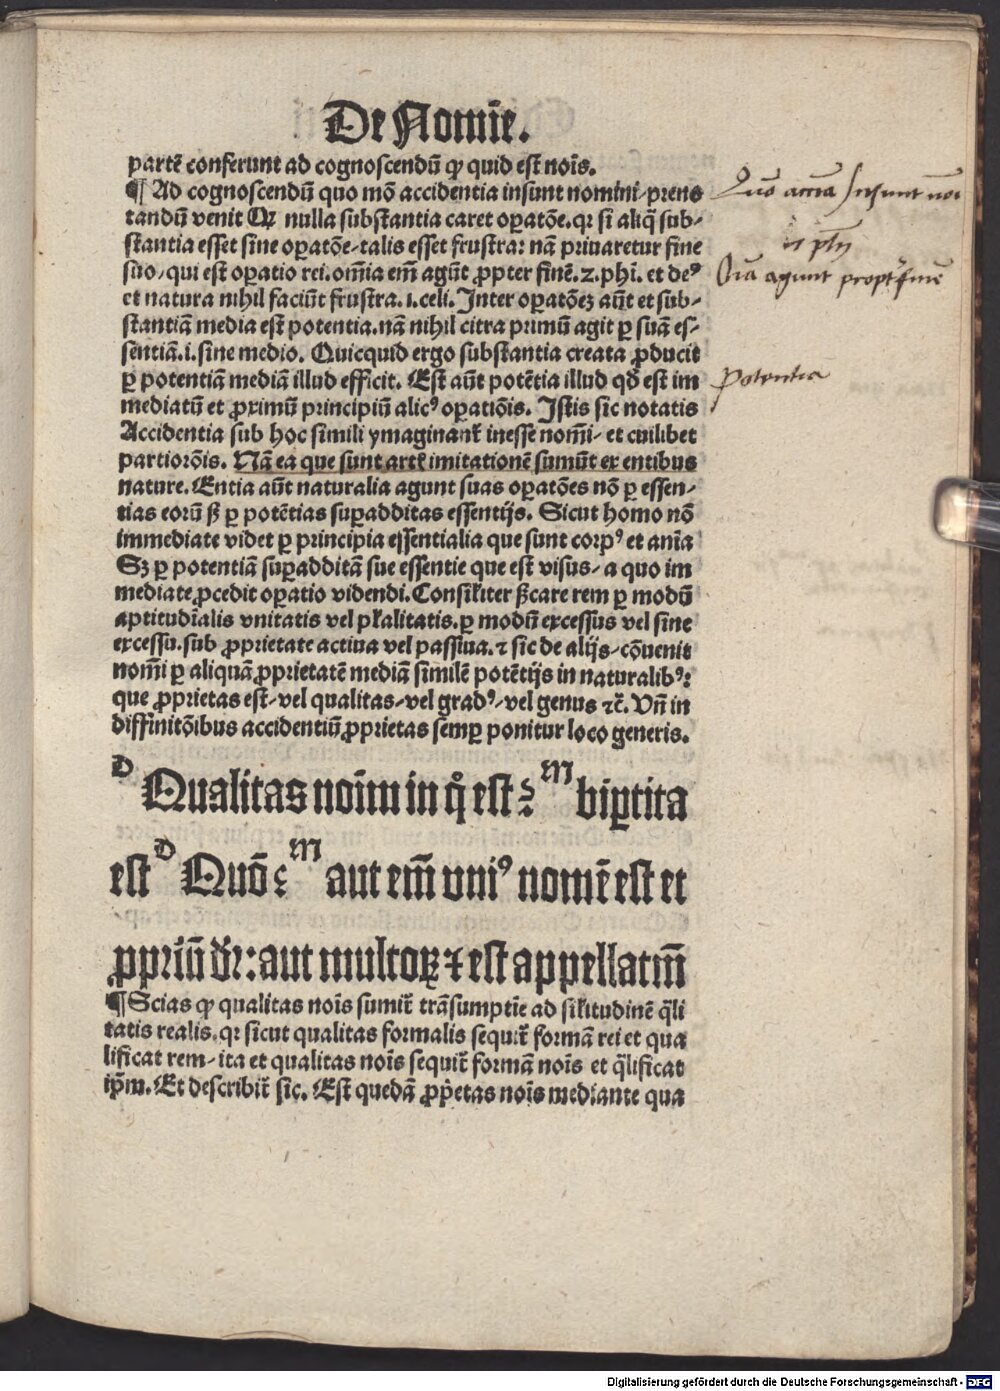 De Nomīe.
partē conferunt ad cognoscendū ꝙ quid est noīs.
¶ Ad cognoscendū quo mō accidentia insunt nomini, prenotandū
tandū venit Qꝛ nulla substantia caret oꝑatōe. qꝛ si aliq̄ sub-
stantia esset sine oꝑatōe, talis esset frustra: nā priuaretur fine
suo, qui est oꝑatio rei. om̄ia em̄ agūt ꝓpter finē. 2. phi. et deꝰ
et natura nihil faciūt frustra. i. celi. Inter oꝑatōeꝫ aūt et sub-
stantiā media est potentia. nā nihil citra primū agit ꝑ suā es-
sentiā. i. sine medio. Quicquid ergo substantia creata ꝓducit
ꝑ potentiā mediā illud efficit. Est aūt potētia illud qd̄ est im
mediatū et ꝓximū principiū alicꝰ oꝑatiōis. Istis sic notatis
Accidentia sub hoc simili ymaginant᷑ inesse nom̄i, et cuilibet
partiorōis. Nā ea que sunt art᷑ imitationē sumūt ex entibus
nature. Entia aūt naturalia agunt suas oꝑatōes nō ꝑ essen-
tias eorū sꝫ ꝑ potētias suꝑadditas essentijs. Sicut homo nō
immediate videt ꝑ principia essentialia que sunt corpꝰ et anīa
Sꝫ ꝑ potentiā suꝑadditā sue essentie que est visus, a quo im
mediate ꝓcedit oꝑatio videndi. Consiłiter ſꝫcare rem ꝑ modū
aptitudīalis vnitatis vel płalitatis. ꝑ modū excessus vel sine
excessu. sub ꝓprietate actiua vel passiua. ⁊ sic de alijs, cōuenit
nom̄i ꝑ aliquā ꝓprietatē mediā similē potētijs in naturalibꝰ:
que ꝓprietas est, vel qualitas, vel gradꝰ, vel genus ⁊c̄. Vn̄ in
diffinitōibus accidentiū ꝓprietas semꝑ ponitur loco generis.
D Qualitas noīm in q̊ est? M biꝑtita
est D Quō? M aut em̄ vniꝰ nomē est et
ꝓpriū dr̄: aut multoꝝ ⁊ est appellatm̄
¶ Scias ꝙ qualitas noīs sumit᷑ trāsumptīe ad siłitudinē q̄li
tatis realis. qꝛ sicut qualitas formalis sequit᷑ formā rei et qua
lificat rem, ita et qualitas noīs sequit᷑ formā noīs et q̄lificat
ip̄m. Et describit᷑ sic. Est quedā ꝓp̄etas noīs mediante qua
Quō accīa Insunt noī
Oīa agunt propt᷑ finē
Potentia
Digitalisierung gefördert durch die Deutsche Forschungsgemeinschaft - DFG